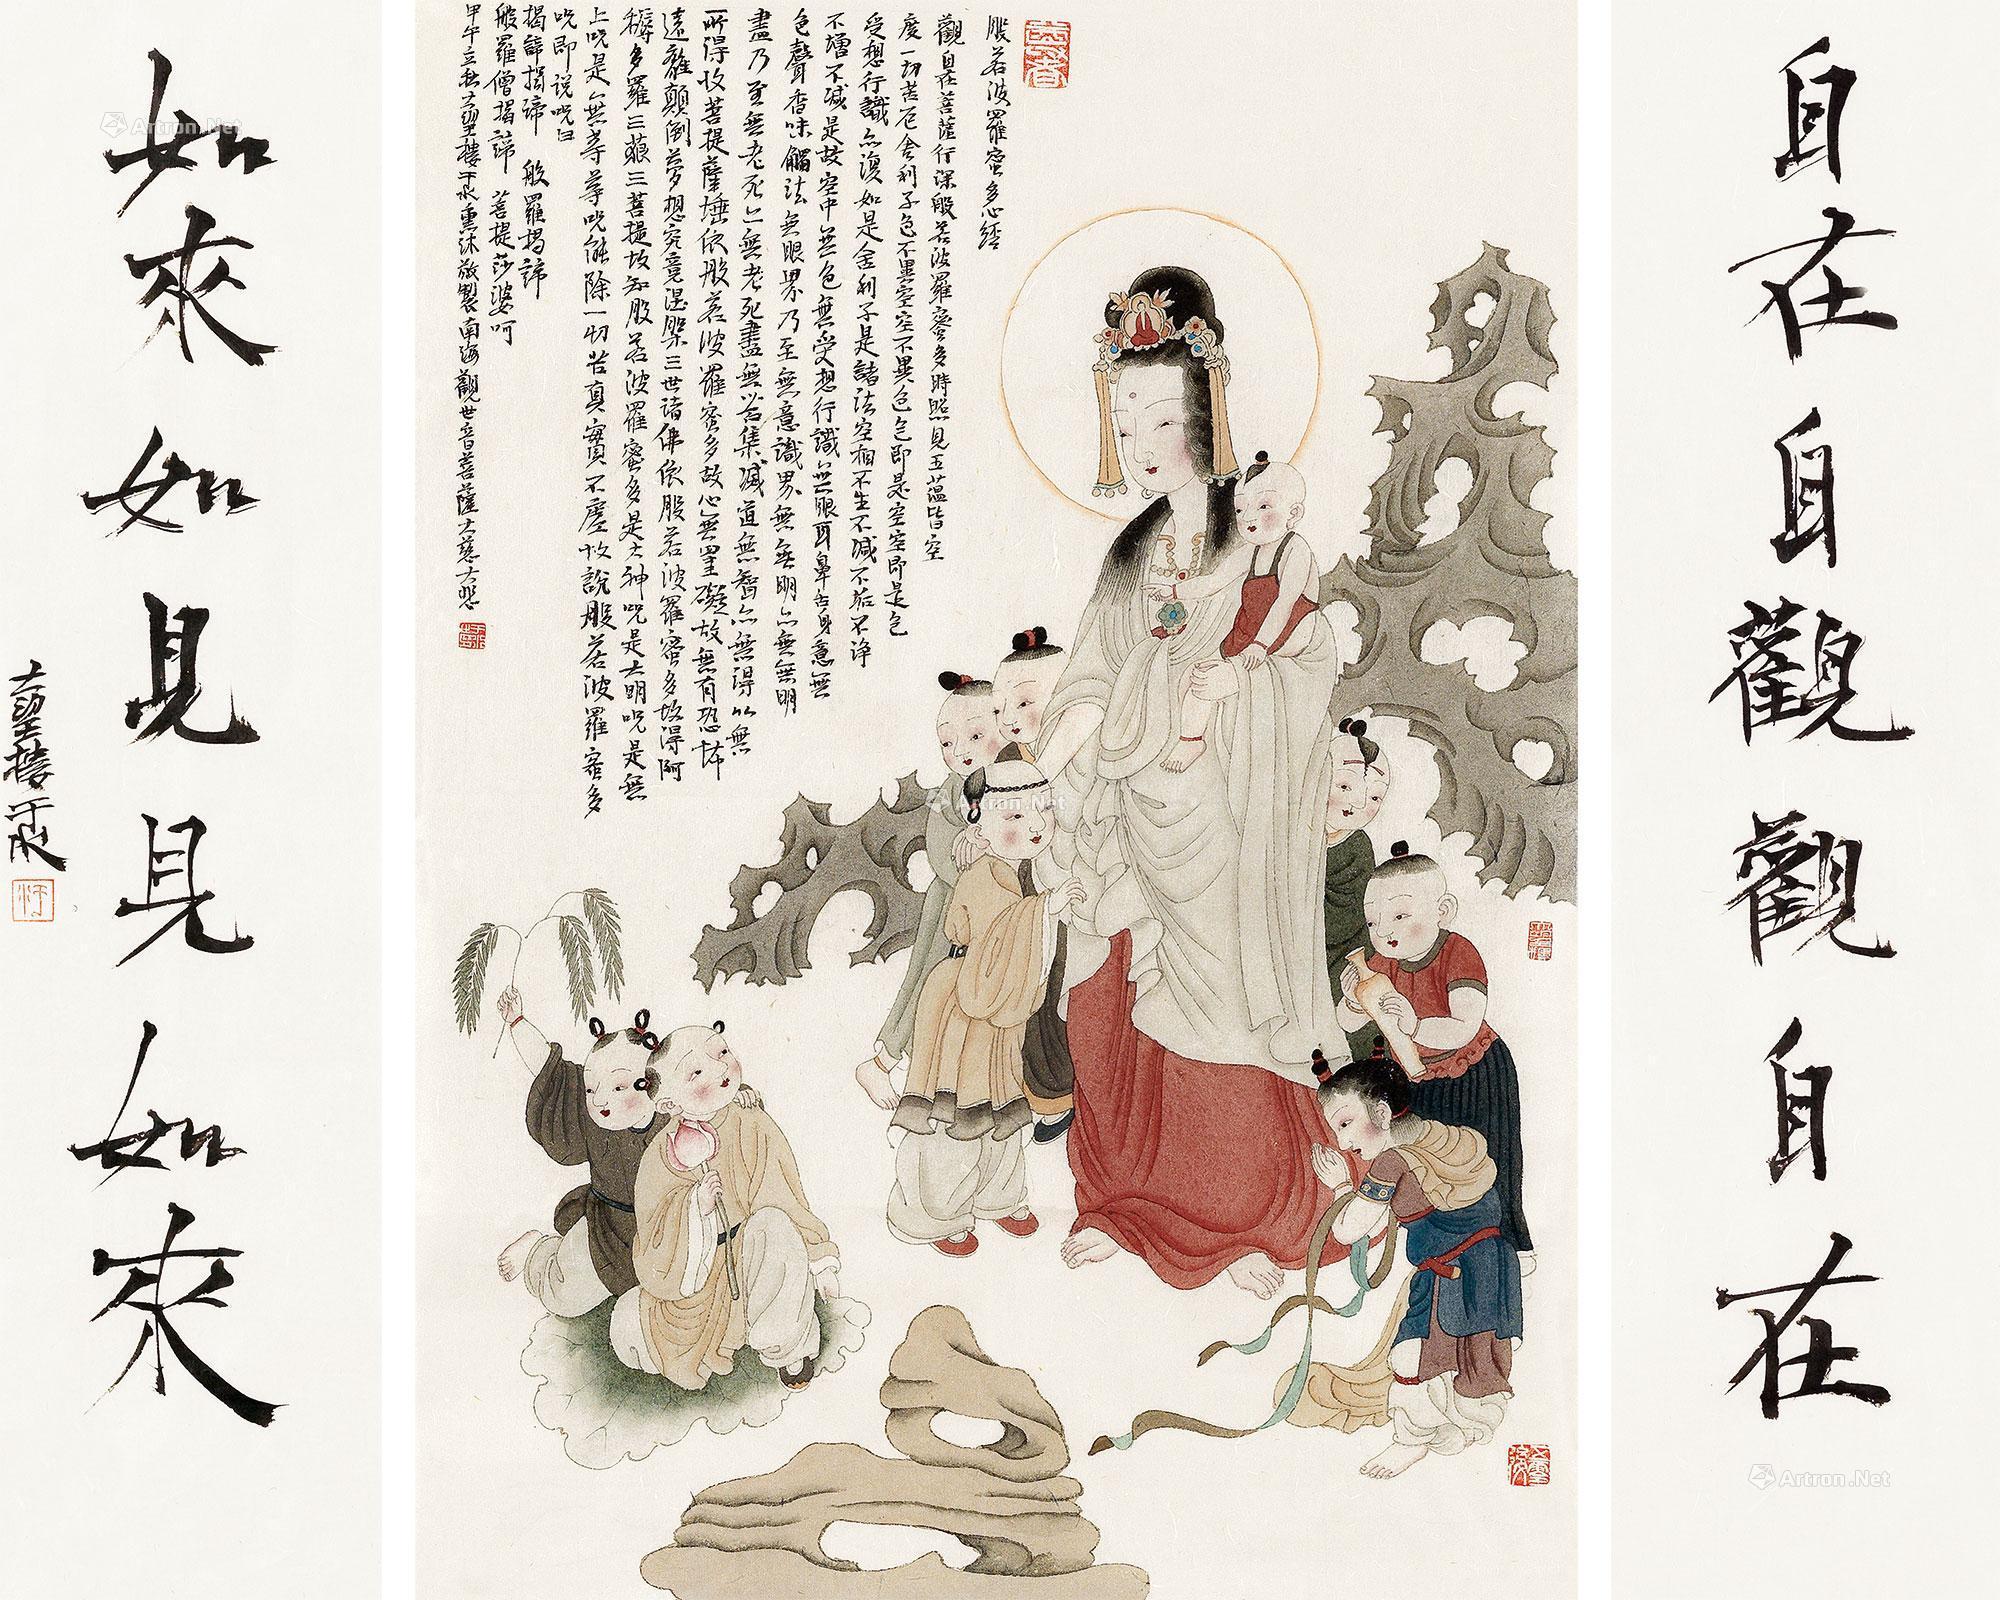 自在自觀觀自在
般若波羅蜜多心經
觀自在菩薩行深般若波羅蜜多時照見五蘊皆空
度一切苦厄舍利子色不異空空不異色色即是空空即是色
受想行識亦復如是舍利子是諸法空相不生不滅不垢不淨
不增不減是故空中無色無受想行識無眼耳鼻舌身意無
色聲香味觸法無眼界乃至無意識界無無明亦無無明
盡乃至無老死亦無老死盡無苦集滅道無智亦無得以無
所得故菩提薩埵依般若波羅蜜多故心無罣礙故無有恐怖
遠離顛倒夢想究竟涅槃三世諸佛依般若波羅蜜多故得阿
耨多羅三藐三菩提故知般若波羅蜜多是大神咒是大明咒是無
上咒是無等等咒能除一切苦真實不虛故說般若波羅蜜多
咒即說咒曰
揭諦揭諦 般羅揭諦
般羅僧揭諦 菩提莎婆呵
甲午立秋大望樓于水熏沐敬製南海觀世音菩薩大慈大悲
如來如見見如來
大望樓于水
Artron.Net
Artron.Net
Artron.Net